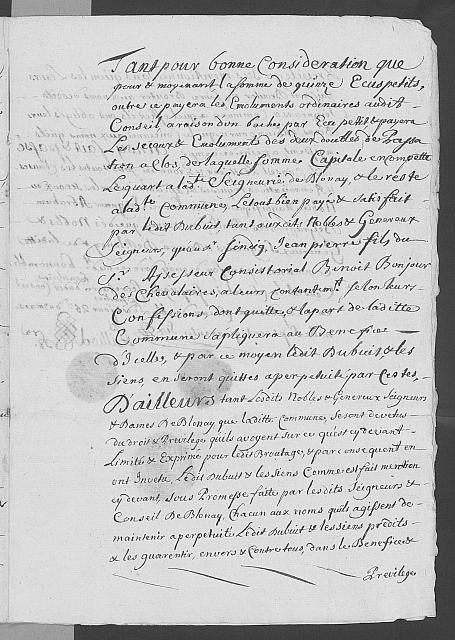 Tant pour bonne Consideration que
pour & moyenant la somme de quinze Ecus petits,
outre ce payera les Emoluments ordinaires audit
Conseil, a raison d'un bache par Ecu petit & payera
Les secaux & Emoluments des deux doubles de Passa
tion a Clos, de laquelle somme Capitale en compette
Le quart a lad.te Seigneurie, de Blonay, & le reste
a lad.te Commune, Le tout bien payé & satisfait
par Ledit Dubuit, tant auxdits Nobles & Genereux
Seigneurs, qu'au Sr. Sindiq, Jean pierre fils du
Sr. Assesseur Consistorial Benoit Bonjour
des Chevalaires, a leurs contantemt. selon leurs
Confessions, dont quitte, & la part de laditte
Commune s'apliquera au Benefice
d'Icelles, & par ce moyen ledit Dubuit & les
siens, en seront quittes a perpetuité par Cestes
D'ailleurs tant Lesdits Nobles & Genereux Seigneurs
& Dames De Blonay, que laditte Commune, se sont devetus
du droit & Previlege qu'ils avoyent sur ce qu'est cy devant
Limité & Exprimé pour ledit Broutage, & par consequent en
ont Invetu, Ledit Dubuit & les siens Comme est fait mention
cy devant, sous Promesse faitte par lesdits Seigneurs &
Conseil De Blonay, Chacun aux noms qu'ils agissent de
maintenir a perpetuité Ledit Dubuit & les siens predits
& les guarentir, envers & Contre tous, dans le Benefice &
Previlege